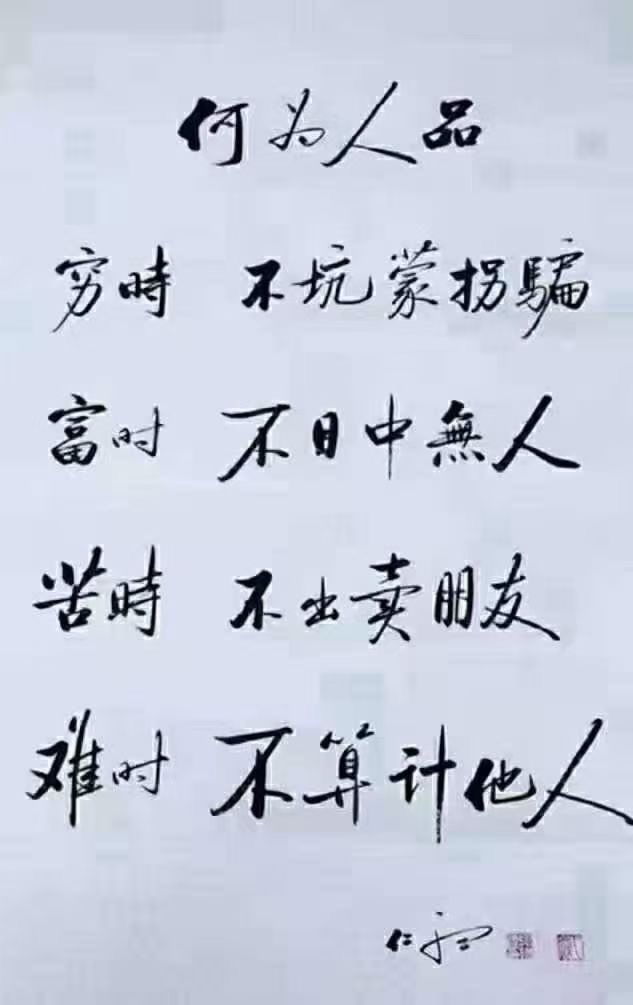 何为人品
穷時 不坑蒙拐騙
富时 不目中無人
苦時 不出卖朋友
难时 不算计他人
仁